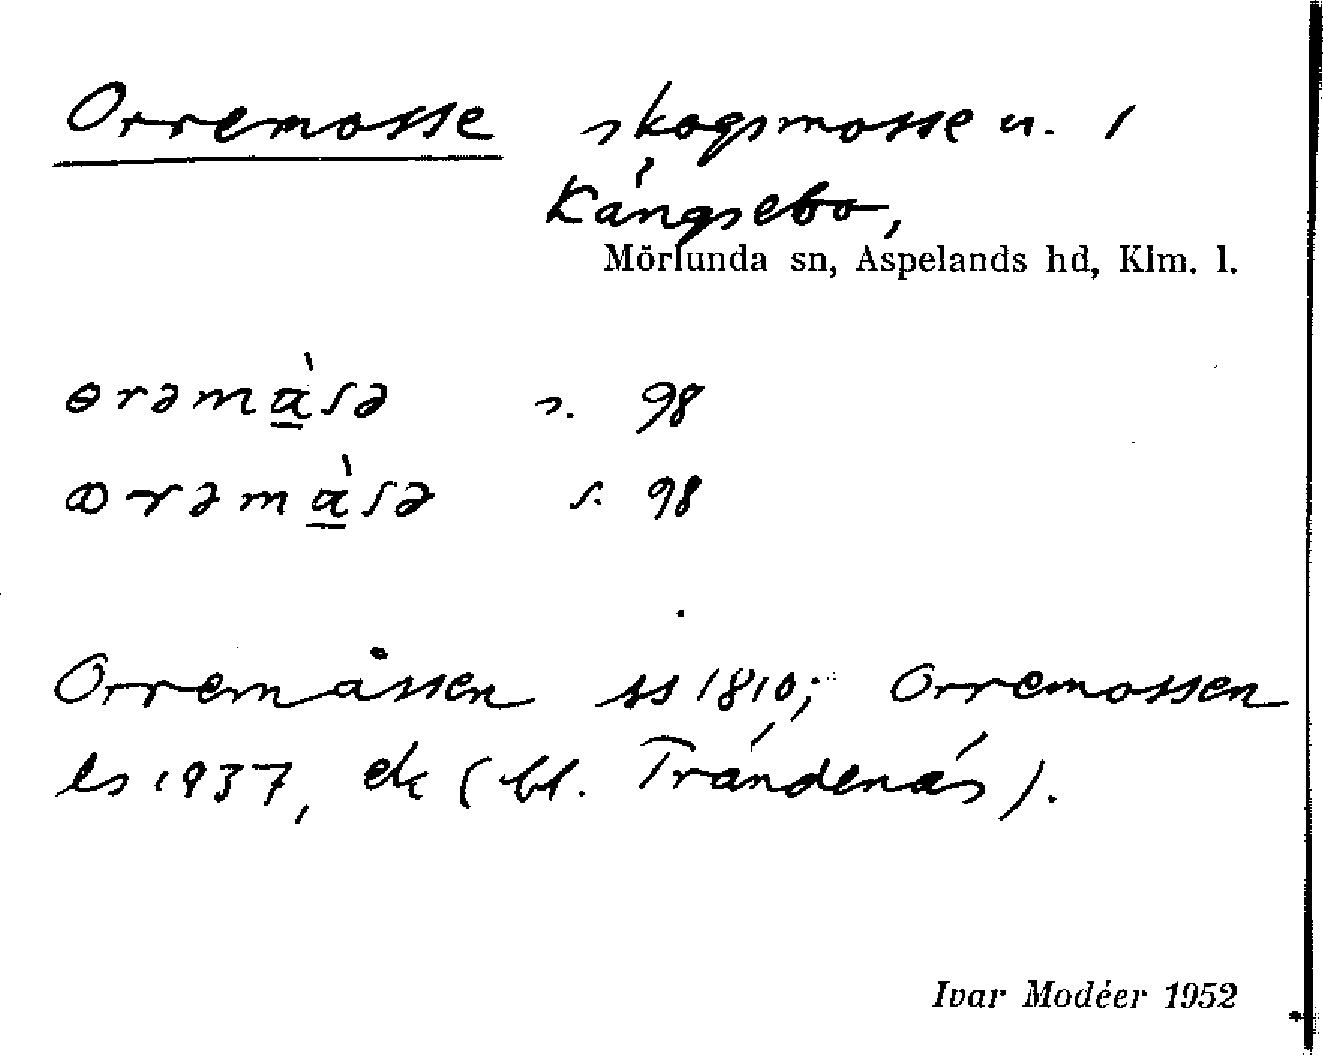 Orremosse skogsmosse u. 1
Kångsebo,
Mörlunda sn, Aspelands hd, Klm. l.
ɵrəmà̱sə s. 98
ꝏrəmà̱sə s. 98
Orremåssen ss 1810; Orremossen
ls 1937, ek (bl. Trändenäs).
Ivar Modéer 1952